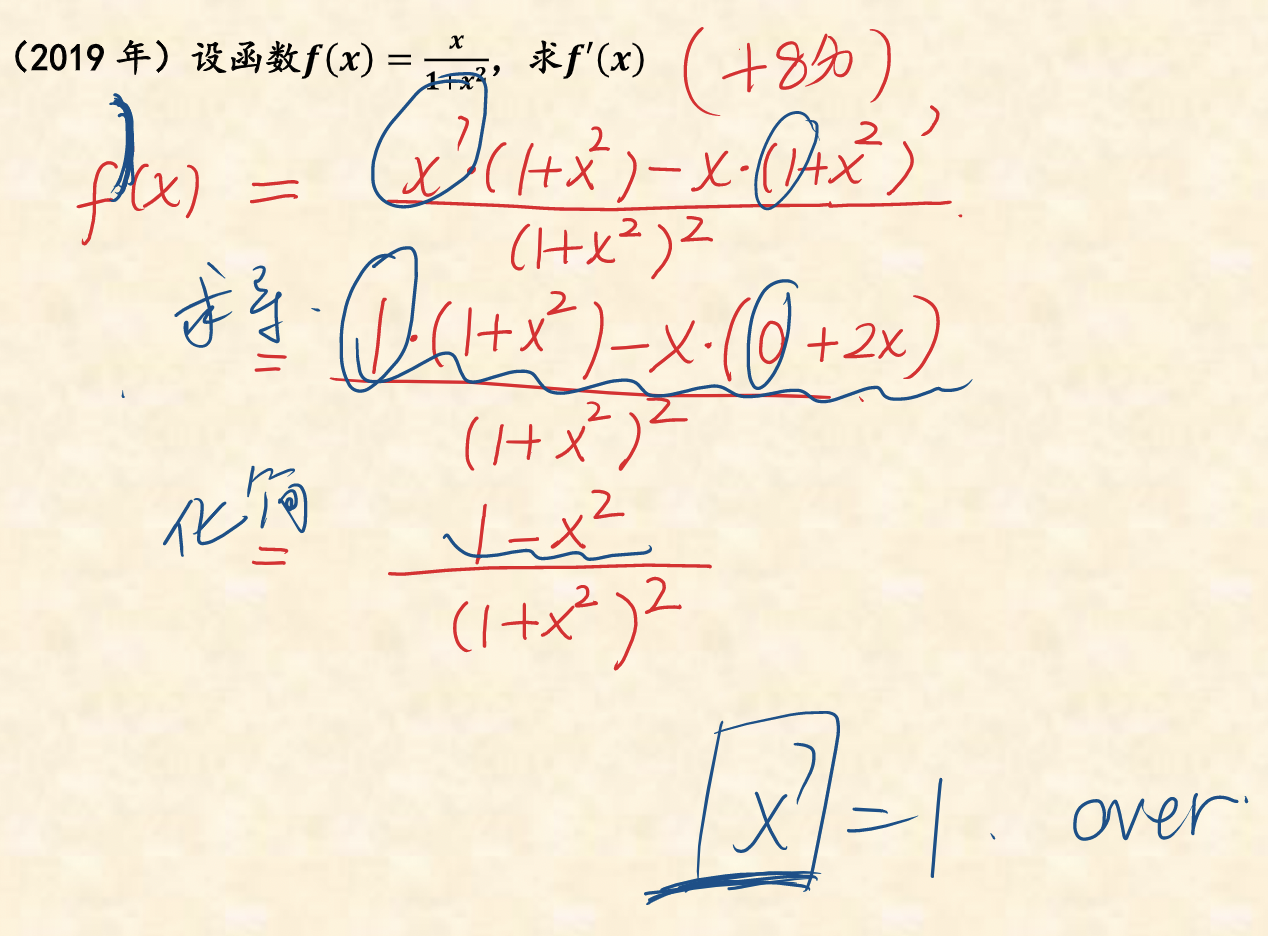 （2019 年）设函数f(x) = x/(1+x²)，求f′(x) (+8分)
f′(x) = (x′·(1+x²)−x·(1+x²)′)/(1+x²)²
求导. = (1·(1+x²)−x·(0+2x))/(1+x²)²
化简 = (1−x²)/(1+x²)²
x′=1. over.